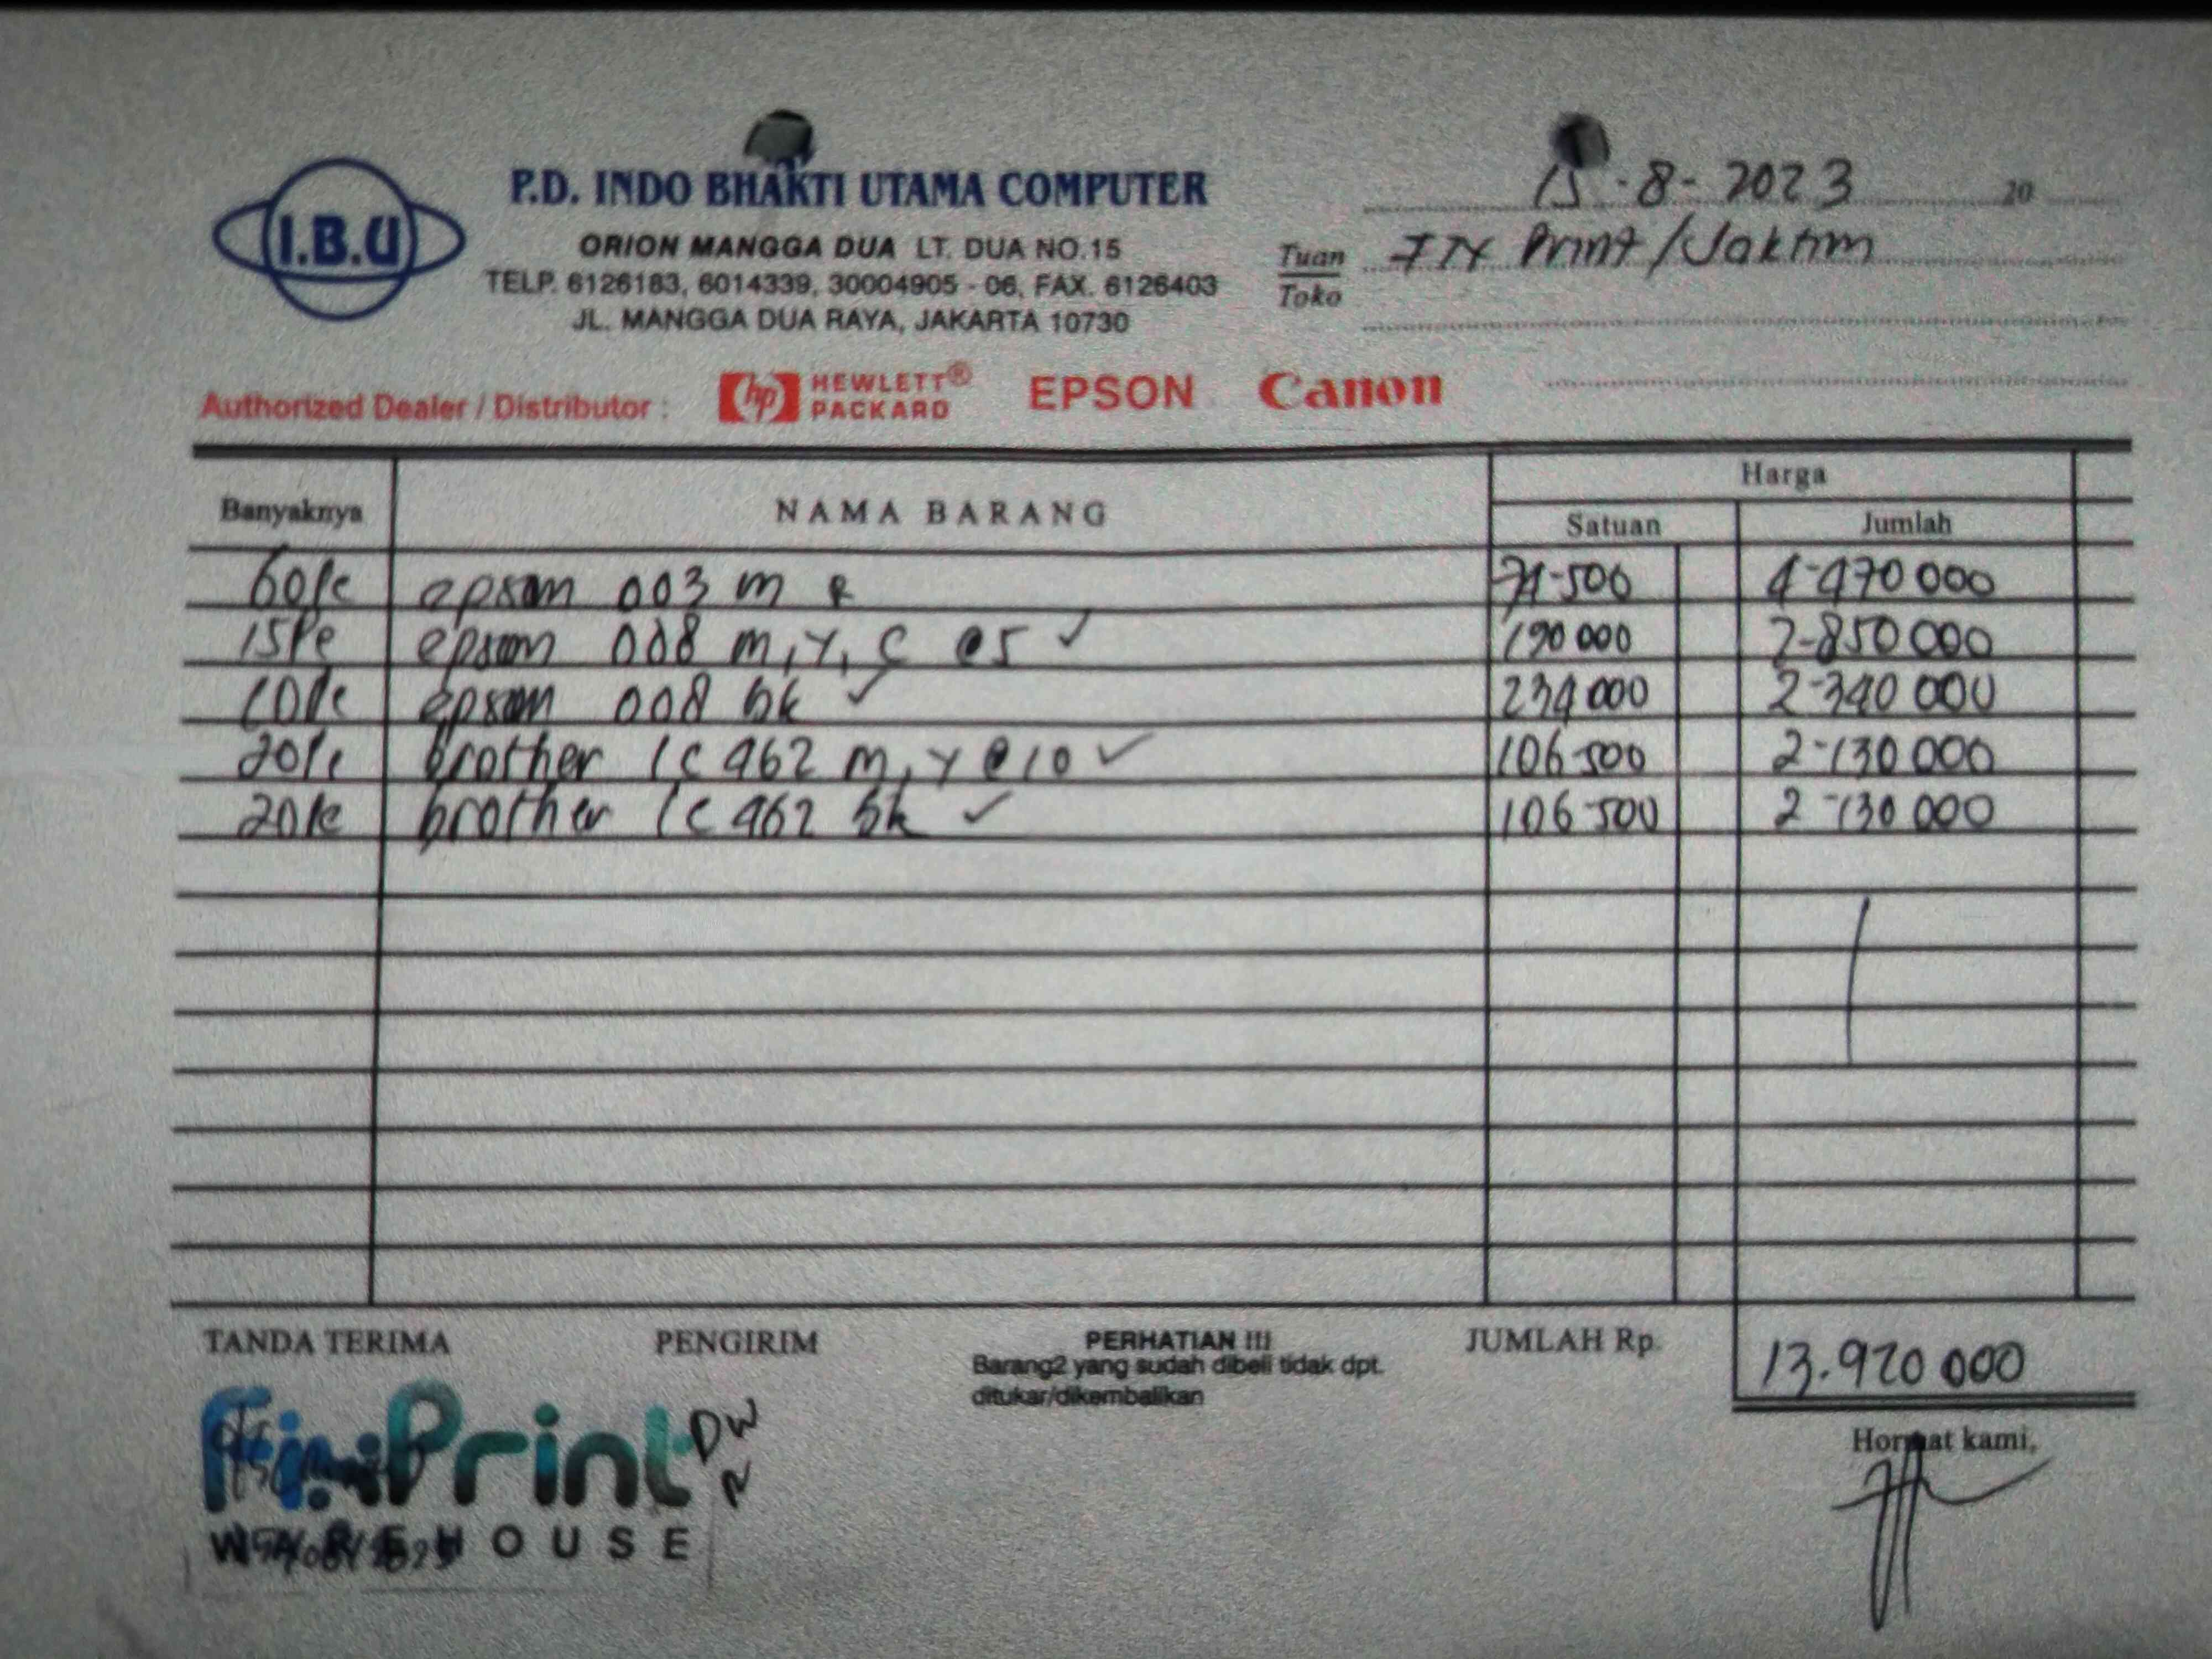 I.B.U
P.D. INDO BHAKTI UTAMA COMPUTER
ORION MANGGA DUA LT. DUA NO.15
TELP. 6126183, 6014339, 30004905 - 06, FAX. 6126403
JL. MANGGA DUA RAYA, JAKARTA 10730
15-8-2023 20
Tuan
Toko
Print/Jaktim
Authorized Dealer / Distributor : hp HEWLETT® PACKARD EPSON Canon
Banyaknya NAMA BARANG Harga
Satuan Jumlah
60pc epson 003 m 74-500 4-470 000
15pc epson 008 m, y, c @5 ✓ 190 000 2-850 000
10pc epson 008 bk ✓ 234 000 2-340 000
20pc brother lc 462 m, y @10 ✓ 106-500 2-130 000
20pc brother lc 462 bk ✓ 106-500 2-130 000
TANDA TERIMA PENGIRIM PERHATIAN !!! JUMLAH Rp. 13.920 000
Barang2 yang sudah dibeli tidak dpt.
ditukar/dikembalikan
Hormat kami,
Print DW
WAREHOUSE